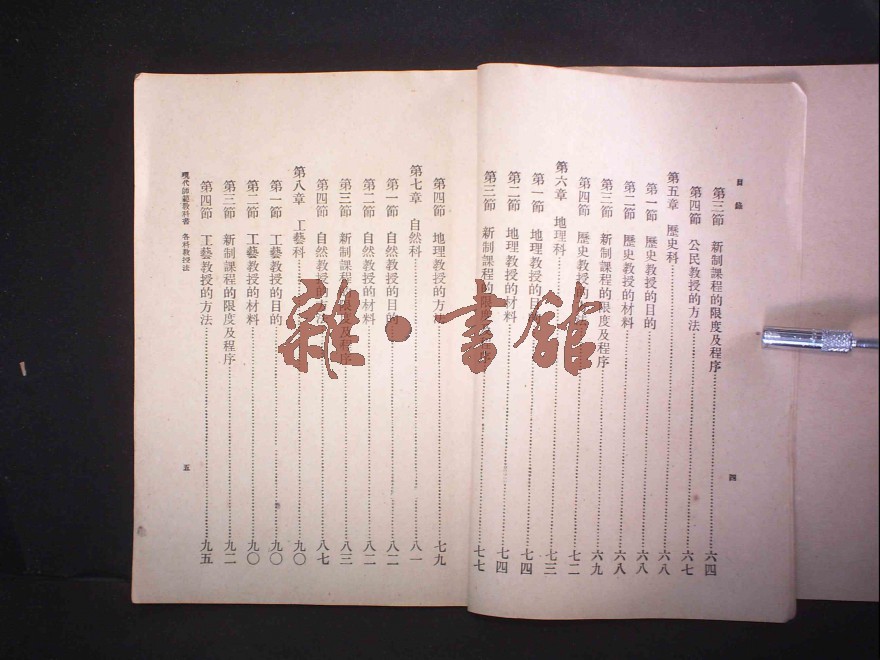 目錄
第三節 新制課程的限度及程序……六四
第四節 公民教授的方法……六七
第五章 歷史科……六八
第一節 歷史教授的目的……六八
第二節 歷史教授的材料……六八
第三節 新制課程的限度及程序……六九
第四節 歷史教授的方法……七二
第六章 地理科……七三
第一節 地理教授的目的……七四
第二節 地理教授的材料……七四
第三節 新制課程的限度及程序……七七
四
第四節 地理教授的方法……七九
第七章 自然科……八一
第一節 自然教授的目的……八二
第二節 自然教授的材料……八二
第三節 新制課程的限度及程序……八三
第四節 自然教授的方法……八七
第八章 工藝科……九〇
第一節 工藝教授的目的……九〇
第二節 工藝教授的材料……九〇
第三節 新制課程的限度及程序……九二
第四節 工藝教授的方法……九五
現代師範教科書 各科教授法
五
雜·書館